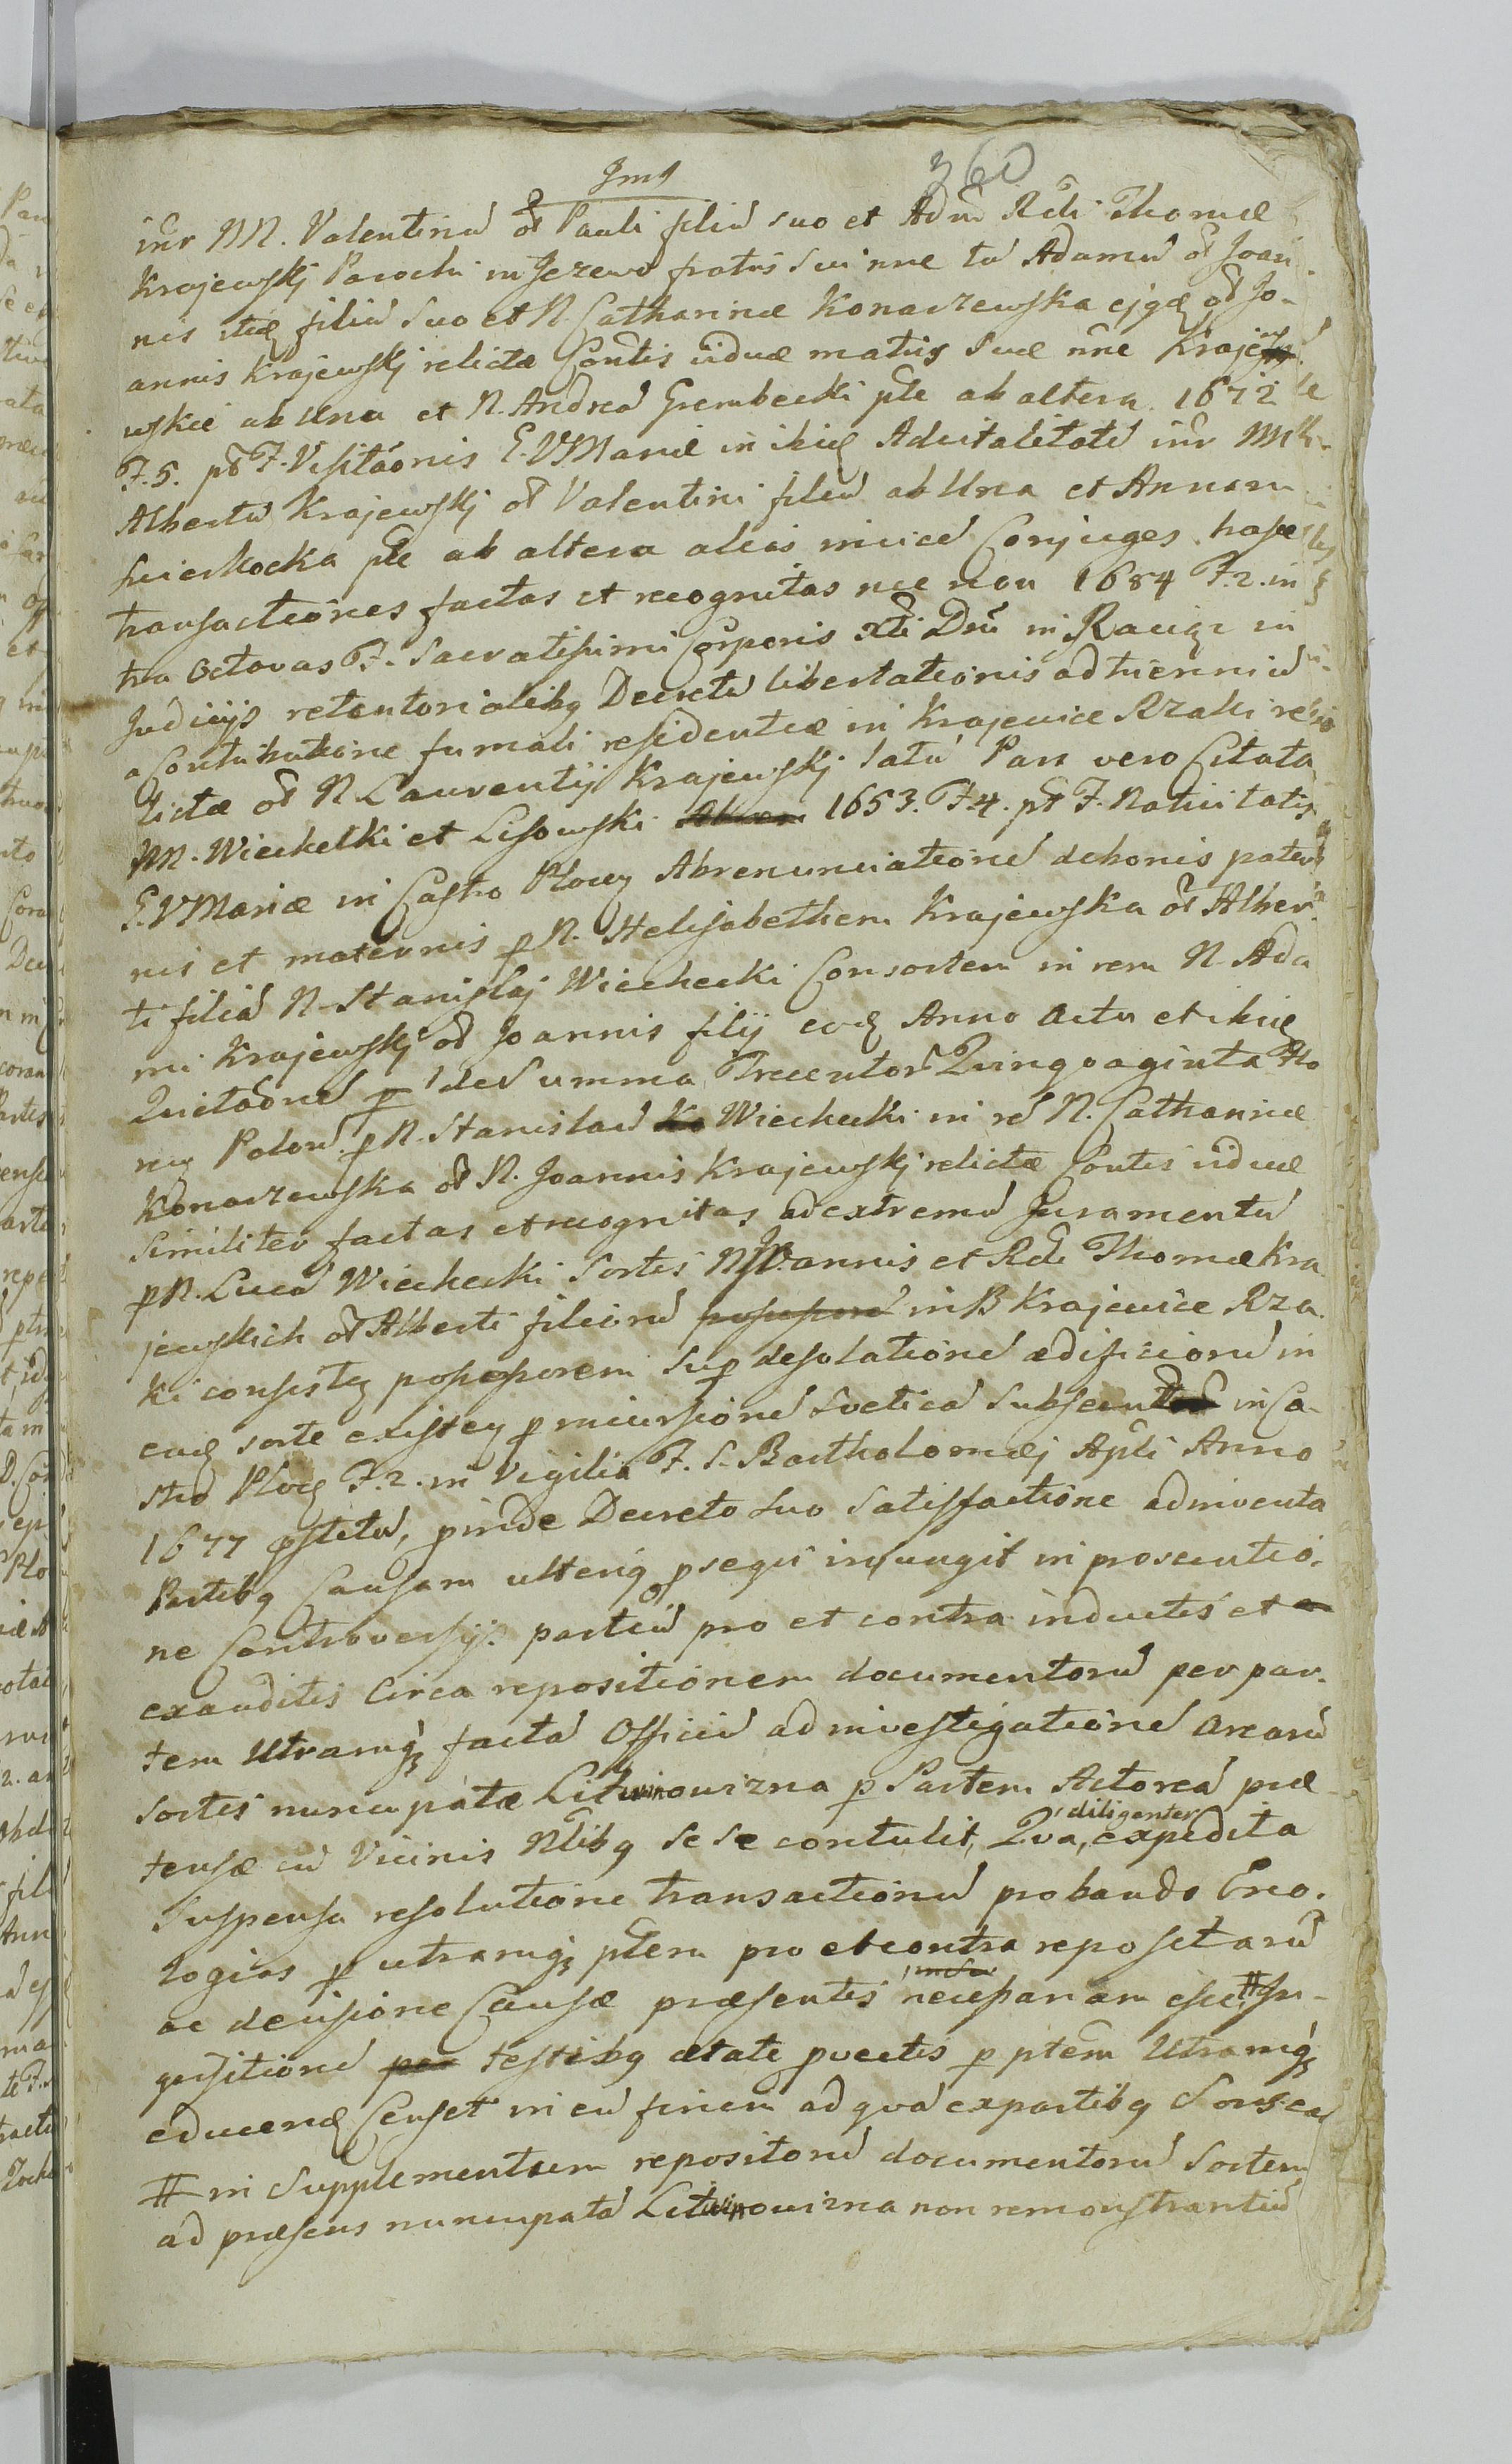 360
Ims
inr NN. Valentinū ōł Pauli filiū suo et Adm Rdi Thomæ
Krajewskj Parochi in Jezewo fratris sui nne tū Adamū ōł Joan
nis itidē filiū suo et N. Catharinæ Konarzewska ejq̄ ōł Jo-
annis Krajewskj relictæ Contis viduæ matris suæ nne Krajew
wskie ab Una et N. Andreā Grembecki pte ab altera 1672
F. 5. pt F. Visitaōnis B. V Mariæ in ibid Advitalitatē inr
Albertū Krajewskj ōł Valentini filiū ab Una et Annam
pte ab altera alias invicē Conjuges hasce
transactiones factas et recognitas nec non 1684 F. 2. in
tra Octavas F. Sacratissimi Corporis Xti Dni in Raciąż in
Judicijs retentorialibq Decretū libertationis ad trienniū
a Contributione fumali residentiæ in Krajewice Rzaki re
lictæ ōł N Laurentij Krajewskj latū Pars vero Citata
NN. Wiechetki et Lisowski 1653. F. 4. pt F. Nativitatis
B. V Mariæ in Castro Plocg Abrenunciationē de bonis pater
nis et maternis p N. Helisabethem Krajewska ōł Alber
ti filiā N. Stanislaj Wiechecki Consortem in rem N. Ada
mi Krajewskj ōł Joannis filij eodē Anno Actu et ibid
Quietaōnē p de Summa Trecentor Quinqvaginta Flo
reg Polon. p N. Stanislaū Ko Wiechecki in rē N. Catharinæ
Konarzewska ōł N. Joannis Krajewskj relictæ Contis viduæ
similiter factas et recognitas ad extremū Juramentū
p N. Lucā Wiechecki Sortis N Joannis et Rdi Thomæ Kra
jewskich ōł Alberti filiorū possessorē in B Krajewice Rza
ki consisteg possessorem sup desolationē ædificiorū in
eadē sorte existeg p incursionē Sveticā subsecut in Ca-
stro Plocg F. 2. in Vigilia F. S. Bartholomæj Apli Anno
1677 pstitū, pinde Decreto suo satisfactione adinventa
Partibq Causam ulteriq psequi injungit in prosecutio-
ne Controversijs partiū pro et contra inductis et
exauditis circa repositionem documentorū per par-
tem Utramq̨ factā Officiū ad investigationē arearū
Sortis nuncupatæ Litwinowizna p Partem Actoreā præ-
tensæ cū Vicinis Nlibq sese contulit, Qva, diligenter expedita
Suspensa resolutione transactionū probando Gneo-
logias p utramq̨ ptem pro et contra repositarū
ac decisione Causæ præsentis necessariam esse # In-
quisitionē per testibq ætate pvectis p ptem Utramq̨
educend Censet in eū finem ad qvā ex partibq Sors ea
# in supplementum repositorū documentorū Sortem
ad præsens nuncupatā Litwinowizna non remonstrantiū